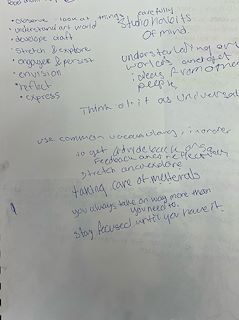 • observe look at things carefully
• understand art world
• develop craft
• stretch & explore
• engage & persist
• envision
• reflect
• express
Studio habits
of mind
understanding art
works and get
ideas from other
people
Think of it as universal
use common vocabulary, in order
to get
feedback
stretch and explore
taking care of materials
you always take on way more than
you need to.
stay focused until you have it.